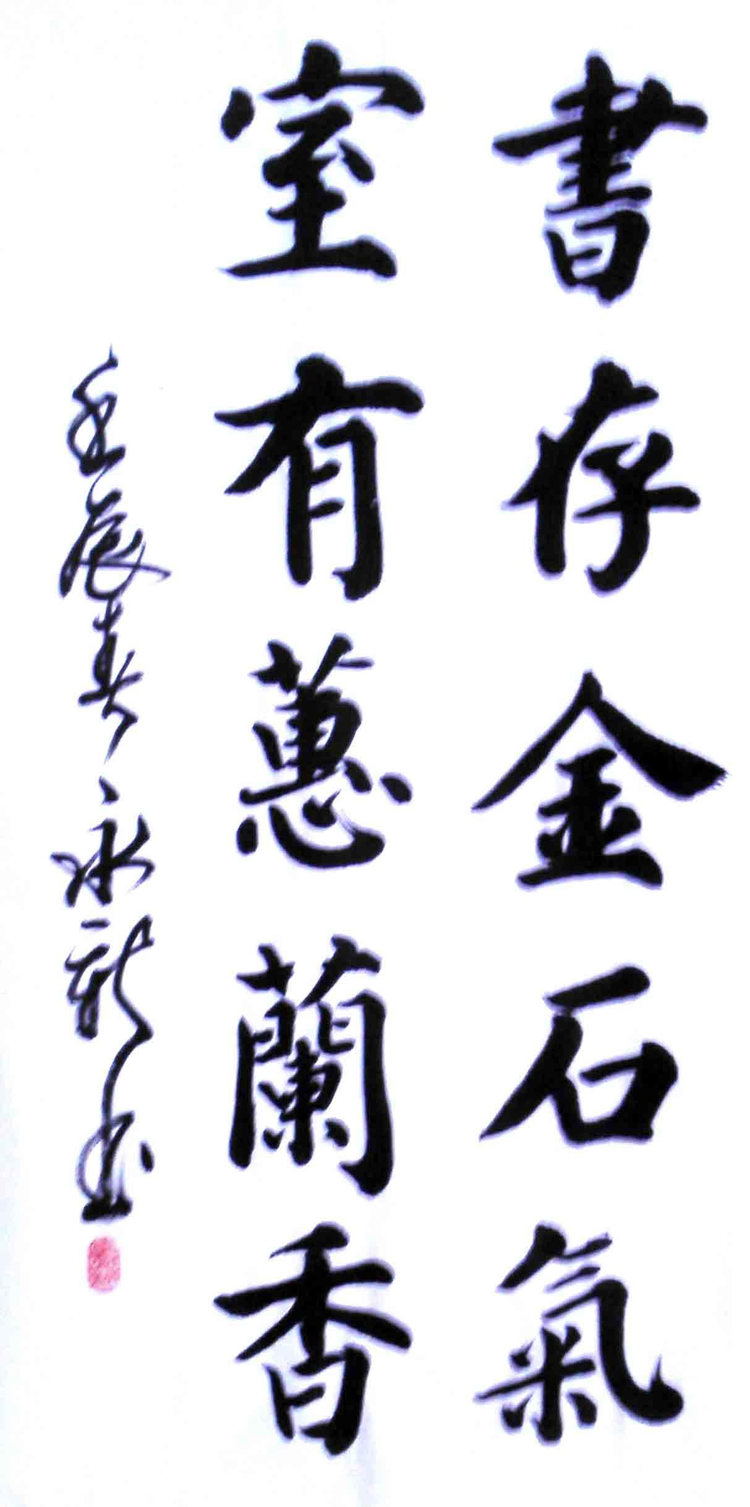 書存金石氣
室有蕙蘭香
壬辰春永新书